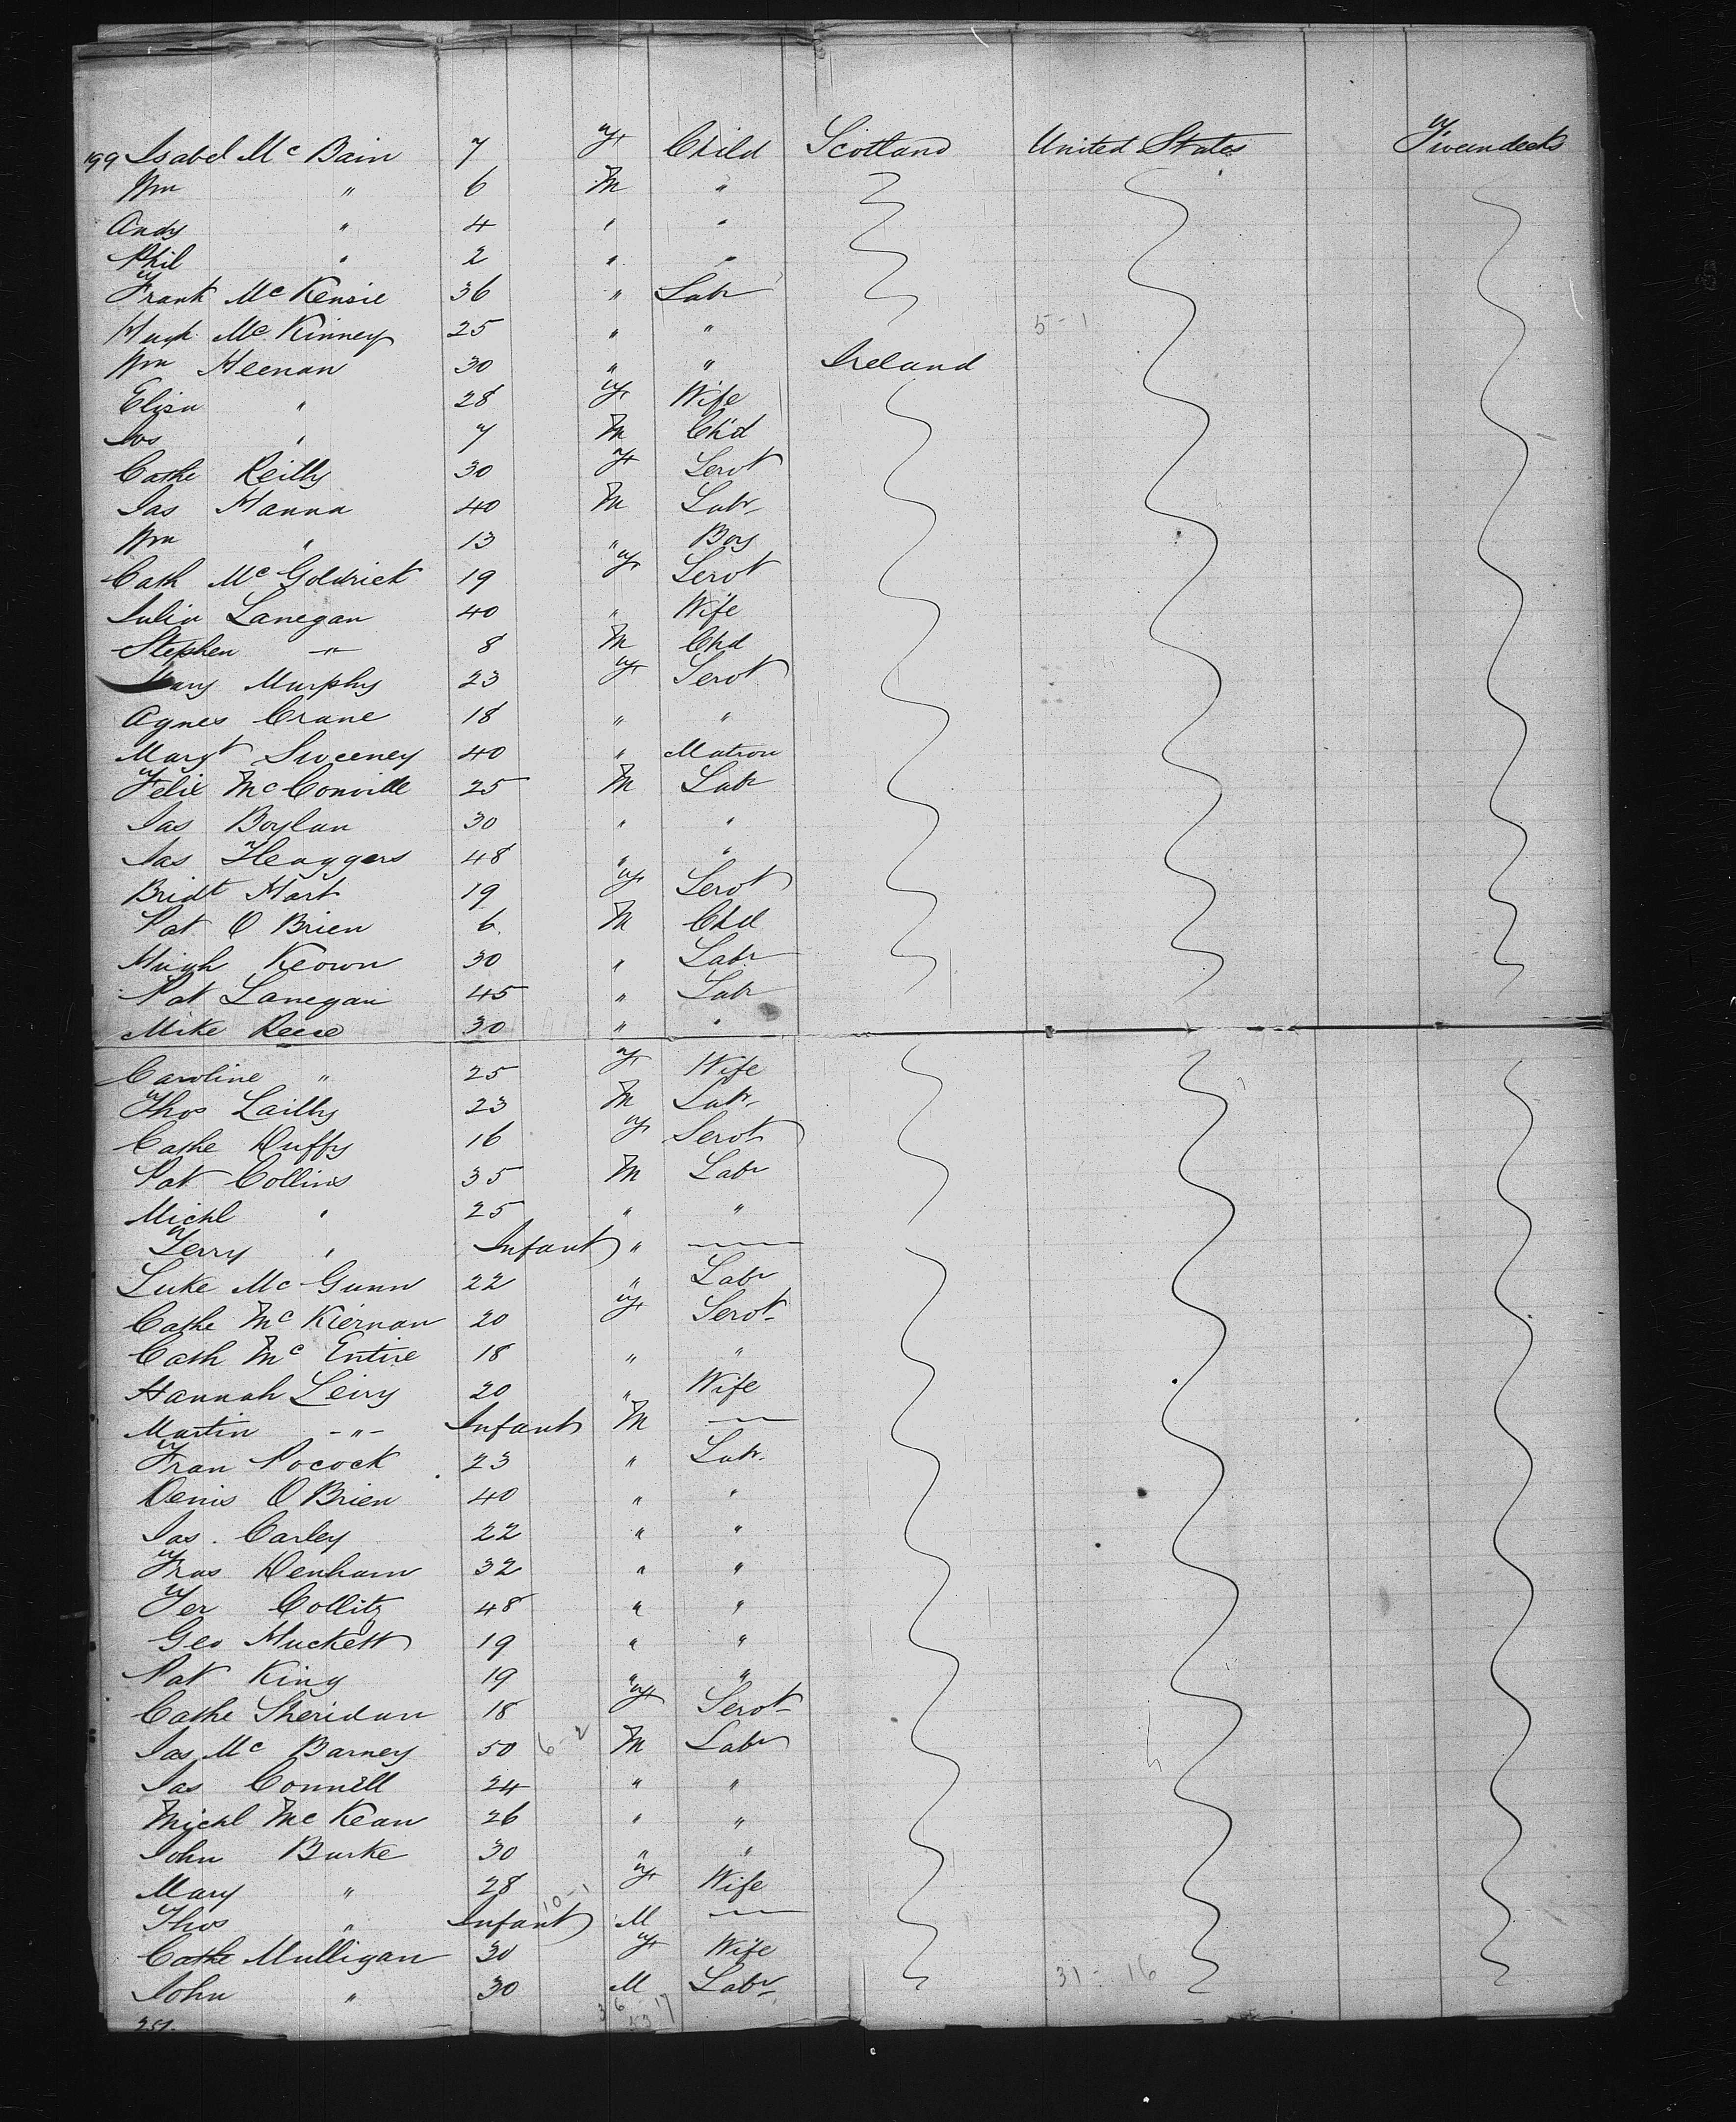 199 Isabel Mc Bain 7 F Child Scotland United States Tweendecks
Wm " 6 M "
Andy " 4 " "
Phil " 2 " "
Frank Mc Kensie 36 " Labr
Hugh Mc Kinney 25 " " 5-1
Wm Heenan 30 " " Ireland
Eliza " 28 F Wife
Jos " 7 M Ch'd
Cathe Reilly 30 F Servt
Jas Hanna 40 M Labr
Wm " 13 " Boy
Cath McGoldrick 19 F Servt
Julia Lanegan 40 " Wife
Stephen " 8 M Chd
Mary Murphy 23 F Servt
Agnes Crane 18 " "
Margt Sweeney 40 " Matron
Felix McConville 25 M Labr
Jas Boylan 30 " "
Jas Heaggers 48 " "
Bridt Hart 19 F Servt
Pat O Brien 6 M Chd
Hugh Keown 30 " Labr
Pat Lanegan 45 " Labr
Mike Reece 30 " "
Caroline " 25 F Wife
Thos Lailly 23 M Labr
Cathe Duffy 16 F Servt
Pat Collins 35 M Labr
Michl " 25 " "
Terry " Infant "
Luke Mc Gunn 22 " Labr
Cathe Mc Kiernan 20 F Servt
Cath Mc Entire 18 " "
Hannah Leiry 20 " Wife
Martin " Infant M
Fran Pocock 23 " Labr
Denis O Brien 40 " "
Jas. Carley 22 " "
Fras Denham 32 " "
Ter Collitz 48 " "
Geo Huckett 19 " "
Pat King 19 " "
Cathe Sheridan 18 F Servt
Jas Mc Barney 50 6-2 M Labr
Jas Connell 24 " "
Michl Mc Kean 26 " "
John Burke 30 " "
Mary " 28 F Wife
Thos " Infant 10-1 M
Cathe Mulligan 30 F Wife
John " 30 M Labr 31-16
251.